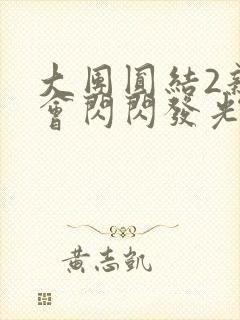 大團圓結2
會閃閃發光
黃志凱